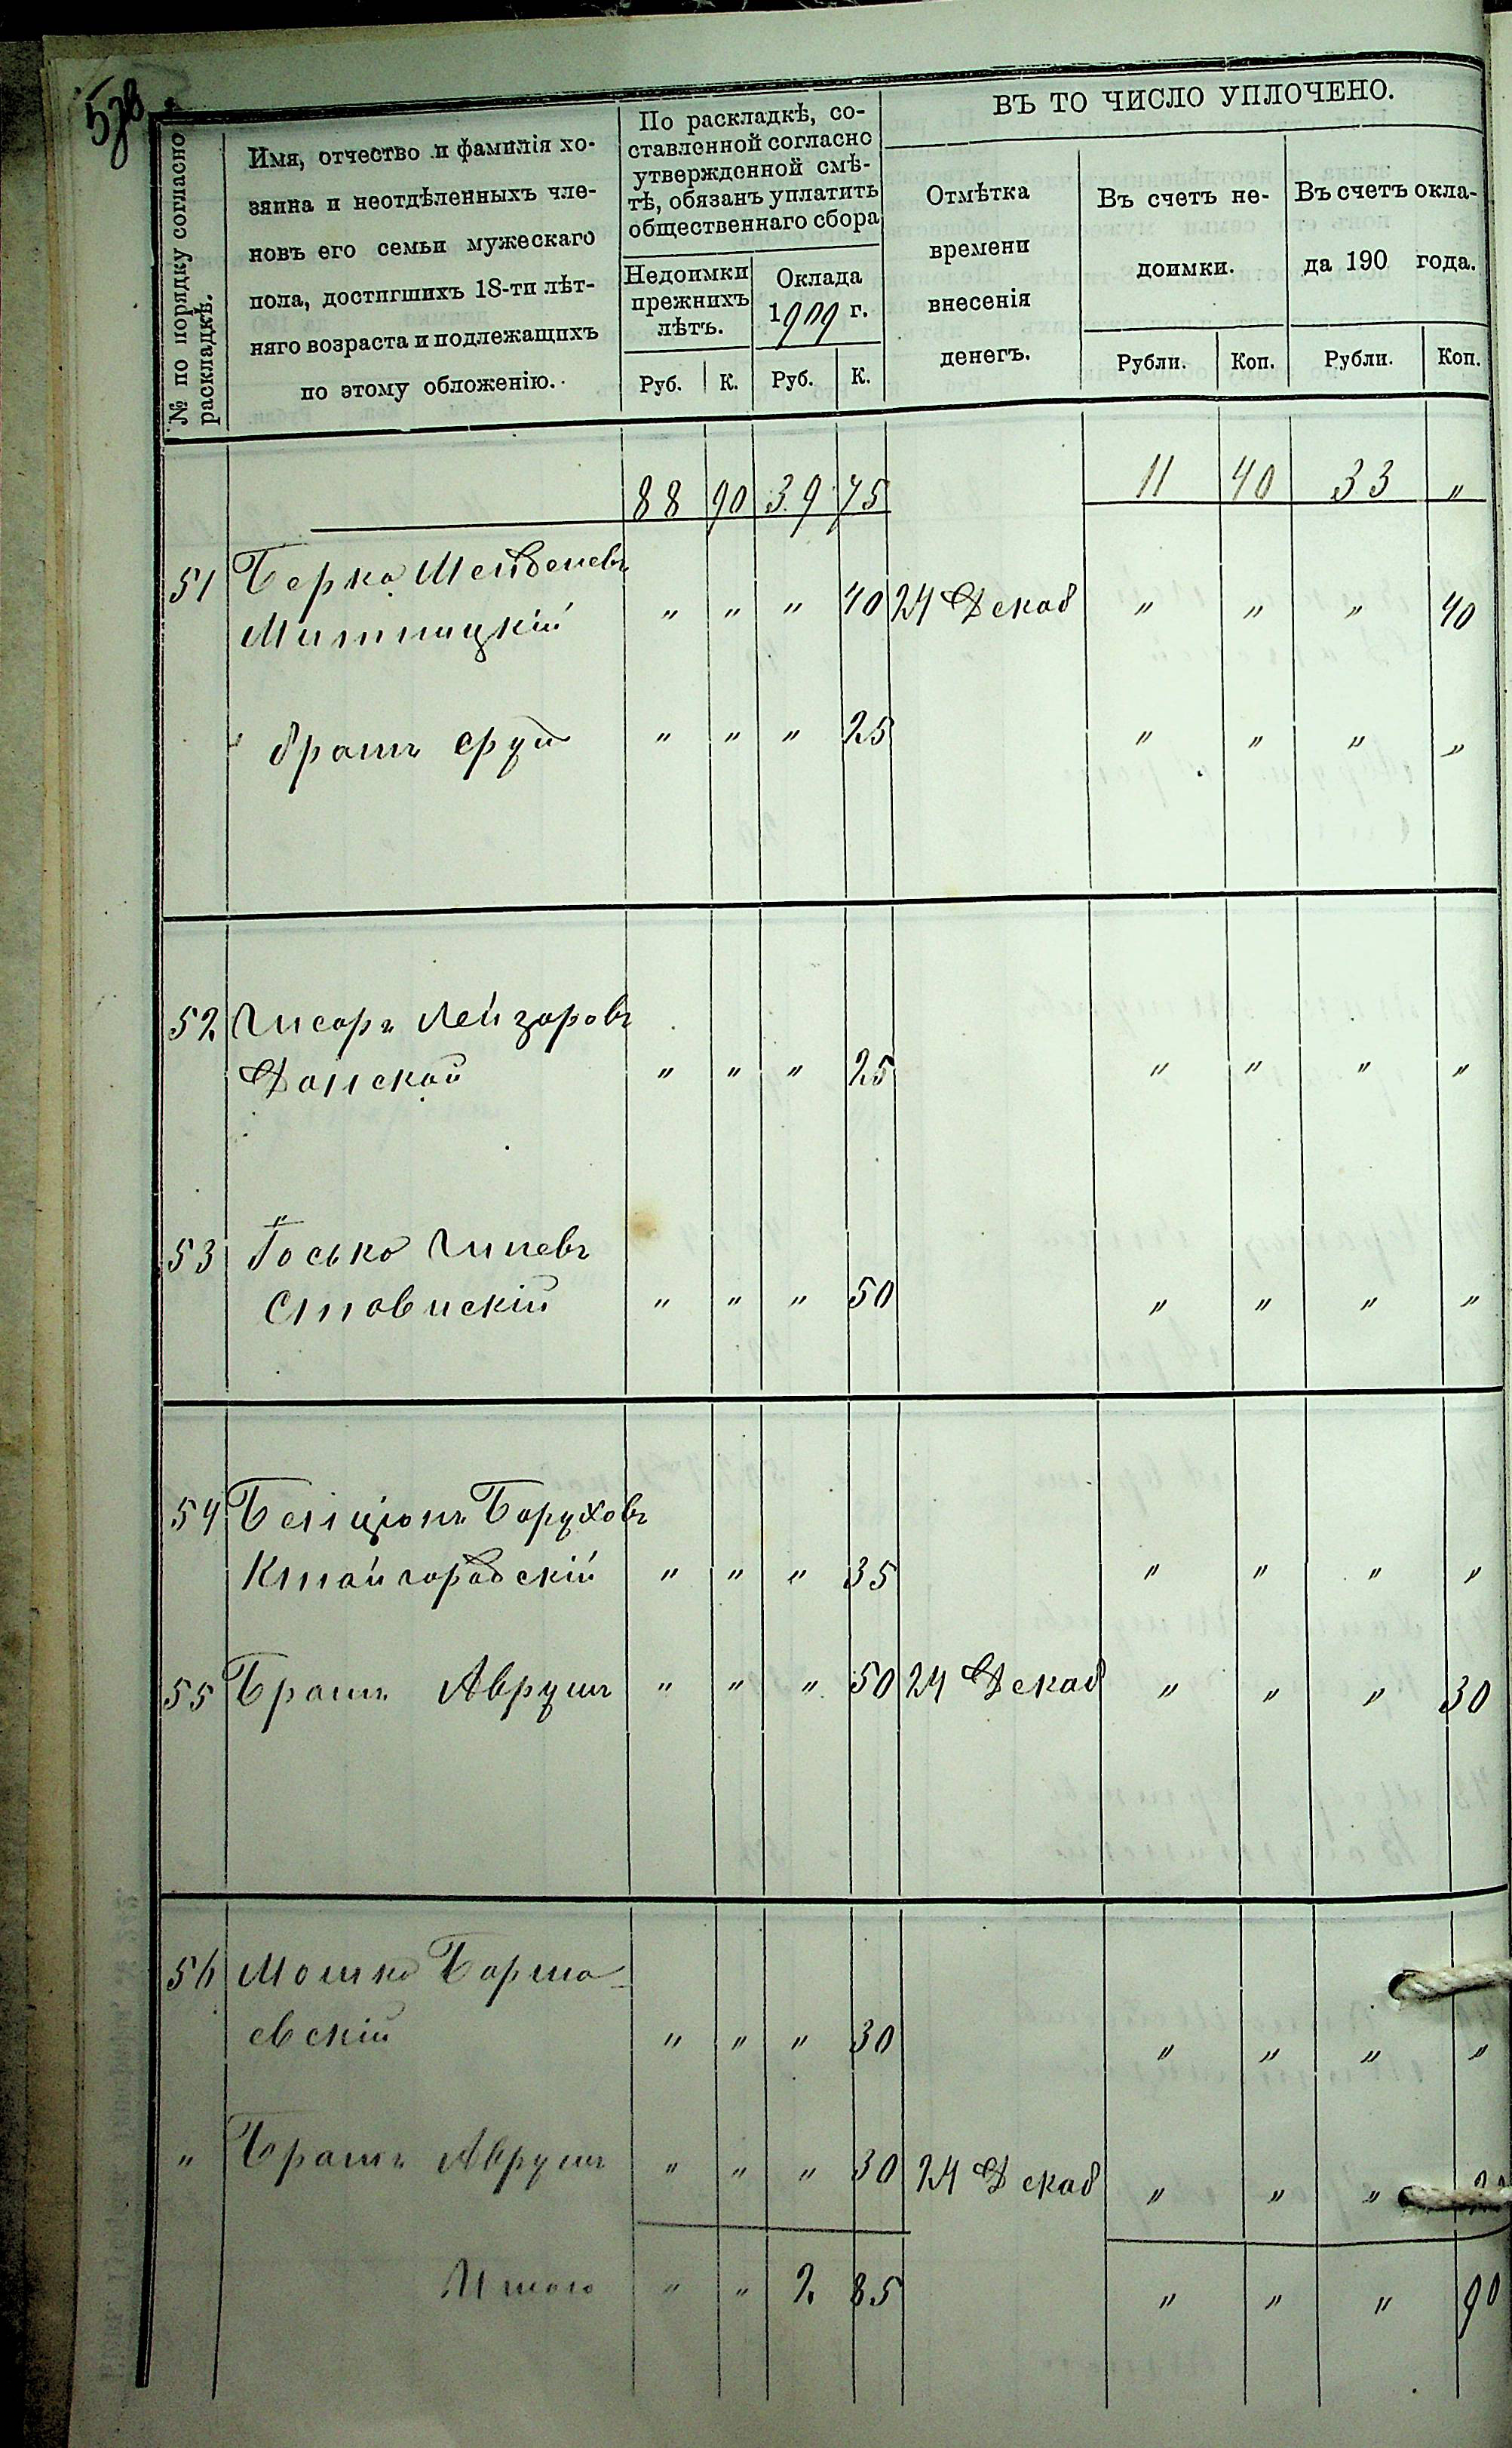 № по порядку согласно раскладкѣ.
Имя, отчество и фамилія хо-
зяина и неотдѣленныхъ чле-
новъ его семьи мужескаго
пола, достигшихъ 18-ти лѣт-
няго возраста и подлежащихъ
по этому обложенію.
По раскладкѣ, со-
ставленной согласно
утвержденной смѣ-
тѣ, обязанъ уплатить
общественнаго сбора
Недоимки
прежнихъ
лѣтъ.
Оклада
1909 г.
Руб. К. Руб. К.
ВЪ ТО ЧИСЛО УПЛОЧЕНО.
Отмѣтка
времени
внесенія
денегъ.
Въ счетъ не-
доимки.
Въ счетъ окла-
да 190 года.
Рубли. Коп. Рубли. Коп.
88 90 39 75 11 40 33 "
51 Берко Менделевъ
Митницкій " " " 40 24 Декаб " " " 40
" братъ Сруль " " " 25 " " " "
52 Лейзоровъ
Донской " " " 25 " " " "
53 Іосько
Ставискій " " " 50 " " " "
54 Бенціонъ Боруховъ
Китайгородскій " " " 35 " " " "
55 Братъ Аврумъ " " " 50 24 Декаб " " " 30
56 Мошко Барша-
евскій " " " 30 " " " "
" Братъ Аврумъ " " " 30 24 Декаб " " "
Итого " " 2 85 " " " 90